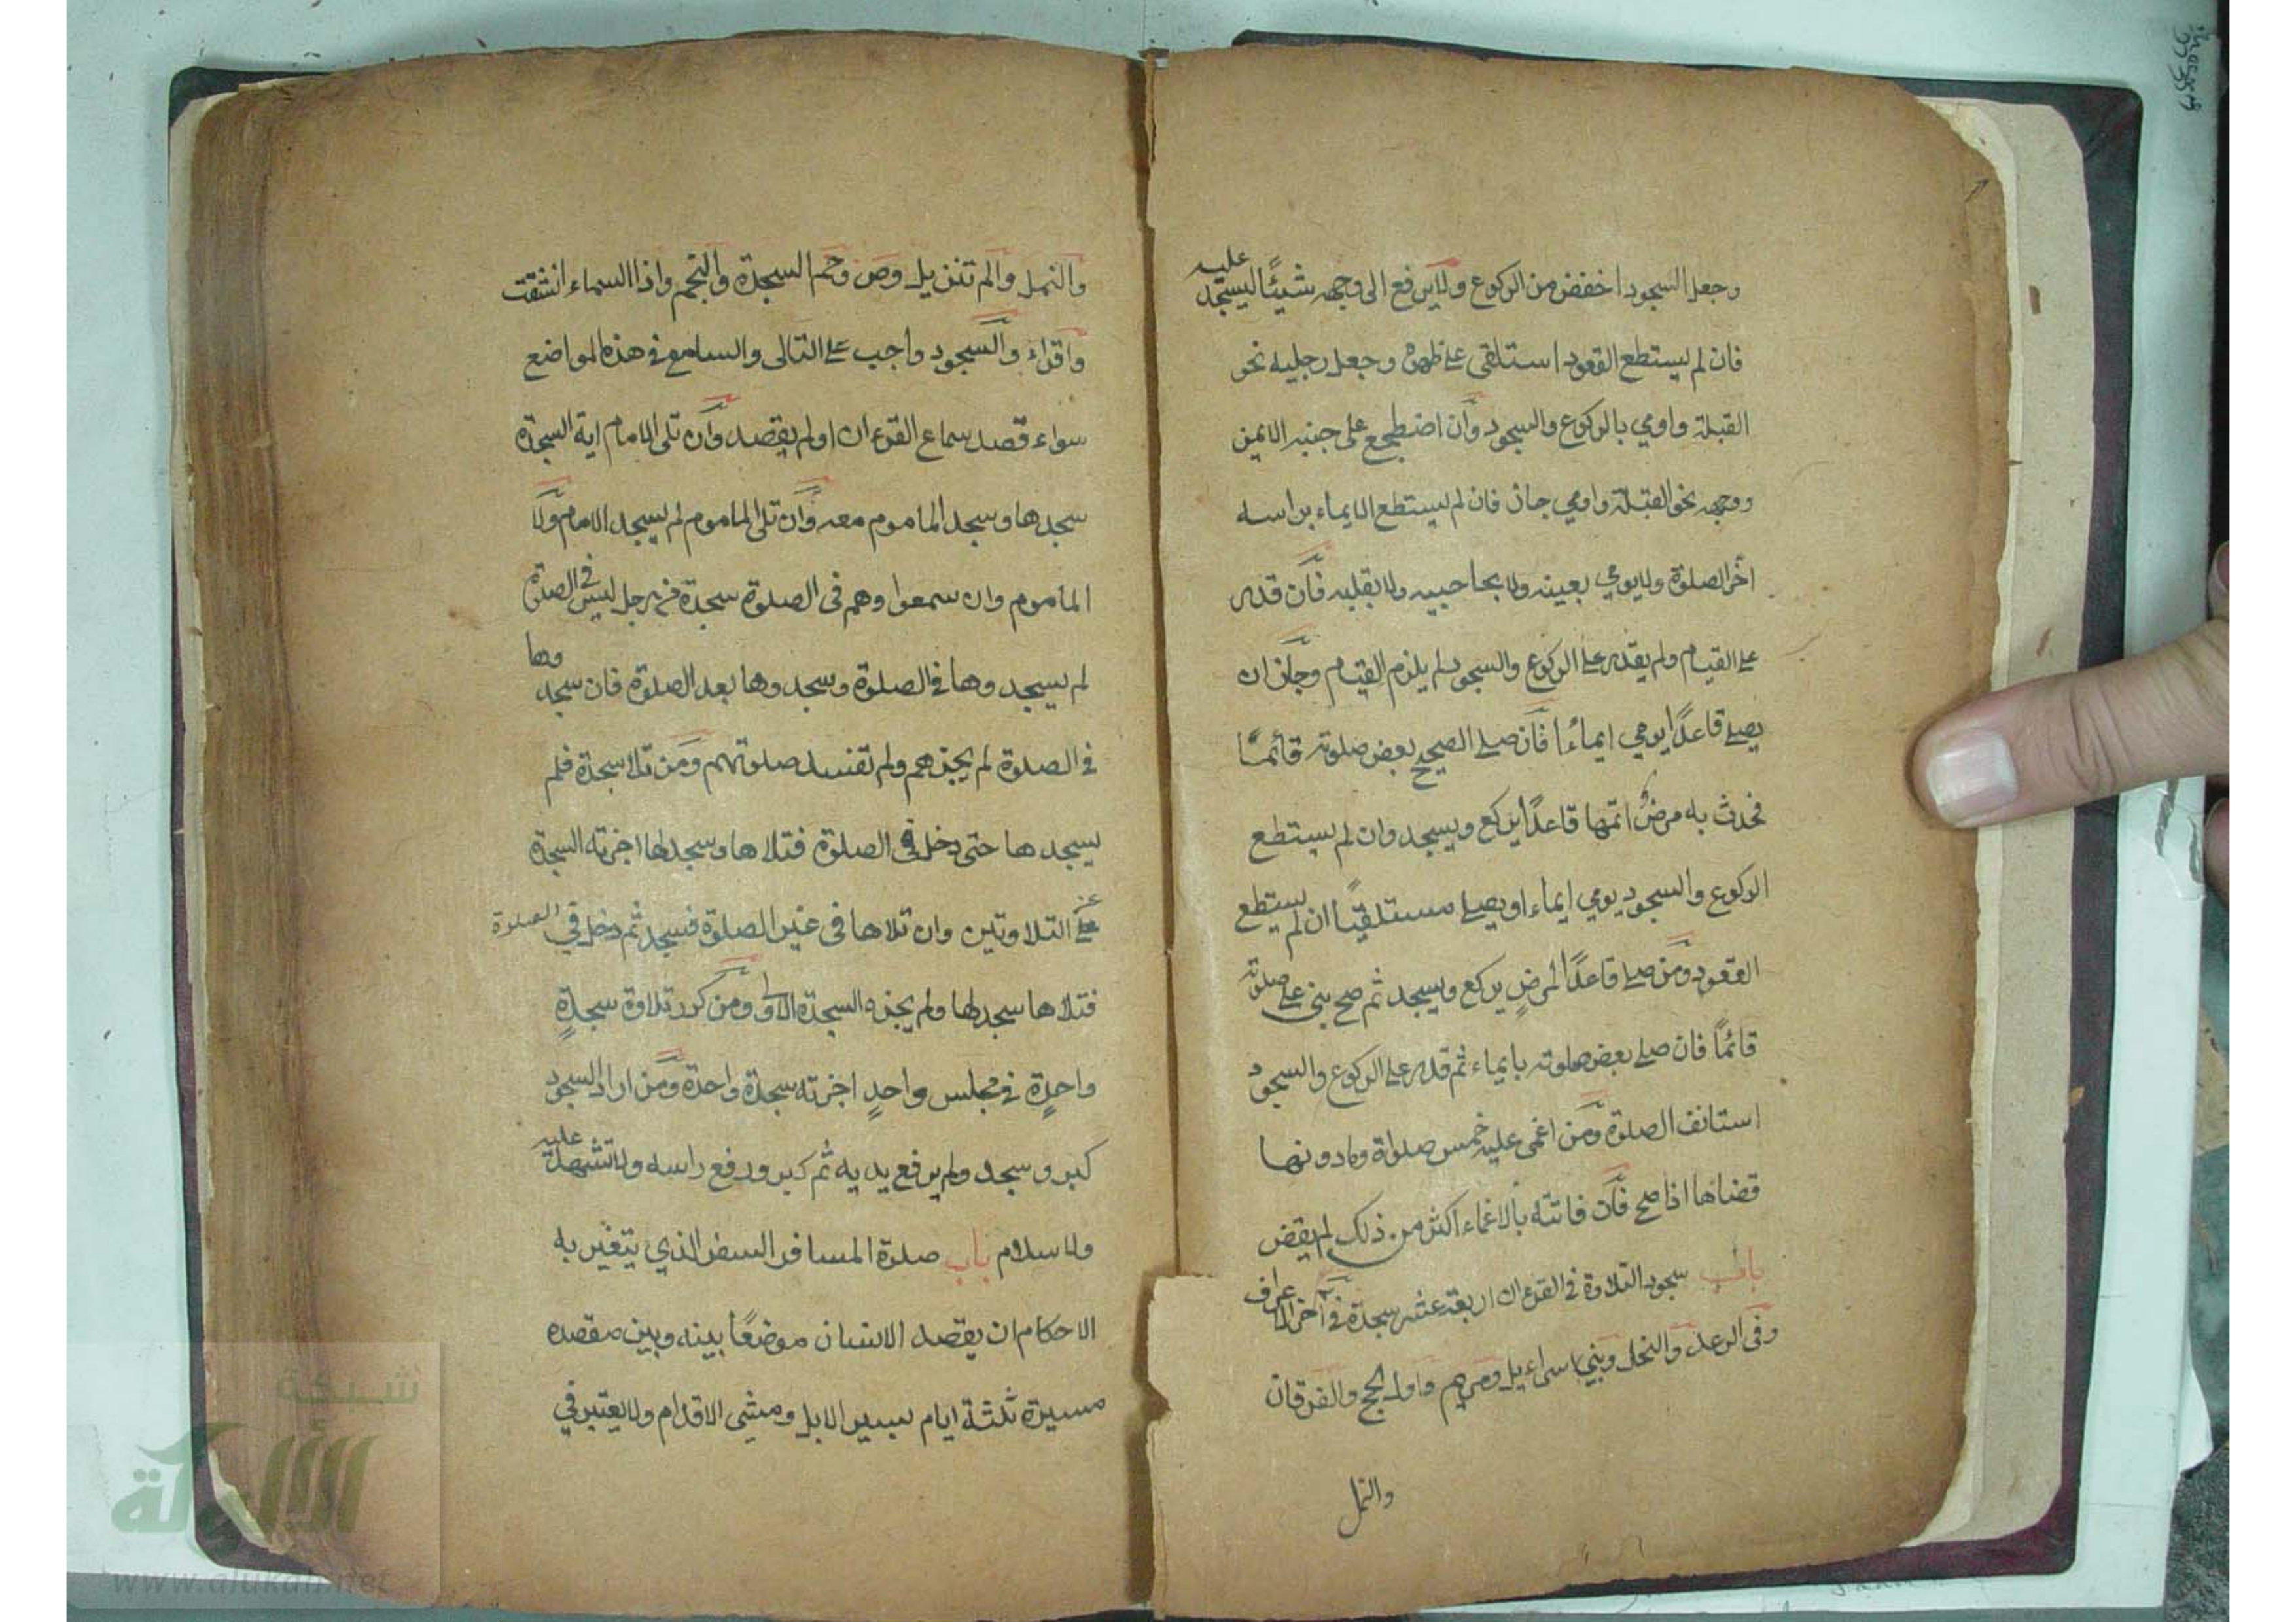 وجعل السجود اخفض من الركوع ولايرفع الى وجهه شيئًا ليسجد عليه
فان لم يستطع القعود استلقى على ظهره وجعل رجليه نحو
القبلة واومي بالركوع والسجود وان اضطجع على جنبه الايمن
ووجهه نحو القبلة واومي جاز فان لم يستطع الايماء براسه
اخر الصلوة ولايومي بعينه ولا بحاجبيه ولا بقلبه فان قدر
على القيام ولم يقدر على الركوع والسجود لم يلزم القيام وجاز ان
يصلي قاعدًا يومي ايماءً فان صلى الصحيح بعض صلوته قائمًا
فحدث به مرضٌ اتمها قاعدًا يركع ويسجد وان لم يستطع
الركوع والسجود يومي ايماء او يصلي مستلقيًا ان لم يستطع
القعود ومن صلى قاعدًا لمرضٍ يركع ويسجد ثم صح بنى على صلوته
قائمًا فان صلى بعض صلوته بايماء ثم قدر على الركوع والسجود
استانف الصلوة ومن اغمى عليه خمس صلواة ومادونها
قضاها اذا صح فان فاتته بالاغماء اكثر من ذلك لم يقض
باب سجود التلاوة في القرءان اربعة عشر سجدة في اخر الاعراف
وفى الرعد والنحل وبني اسراءيل ومريم واول الحج والفرقان
والنمل
والنمل والم تنزيل وص وحم السجدة والنجم واذا السماء انشقت
واقراء والسجود واجب على التالى والسامع في هذه المواضع
سواء قصد سماع القرءان اولم يقصد وان تلى الامام اية السجدة
سجدها وسجد الماموم معه وان تلى الماموم لم يسجد الامام ولا
الماموم وان سمعوا وهم فى الصلوة سجدة من رجل ليس في الصلوة
لم يسجدوها في الصلوة وسجدوها بعد الصلوة فان سجدوها
في الصلوة لم يجزهم ولم تفسد صلوتهم ومن تلا سجدة فلم
يسجدها حتى دخل في الصلوة فتلاها وسجد لها اجزته السجدة
عن التلاوتين وان تلاها فى غير الصلوة فسجد ثم دخل في الصلوة
فتلاها سجد لها ولم يجزه السجدة الاولى ومن كرر تلاوة سجدةٍ
واحدةٍ في مجلس واحدٍ اجزته سجدة واحدة ومن اراد السجود
كبر وسجد ولم يرفع يديه ثم كبر ورفع راسه ولا تشهد عليه
ولا سلام باب صلوة المسافر السفر الذي يتغير به
الاحكام ان يقصد الانسان موضعًا بينه وبين مقصده
مسيرة ثلثة ايام بسير الابل ومشي الاقدام ولا يعتبر في
شبكة
الألوكة
www.alukah.net